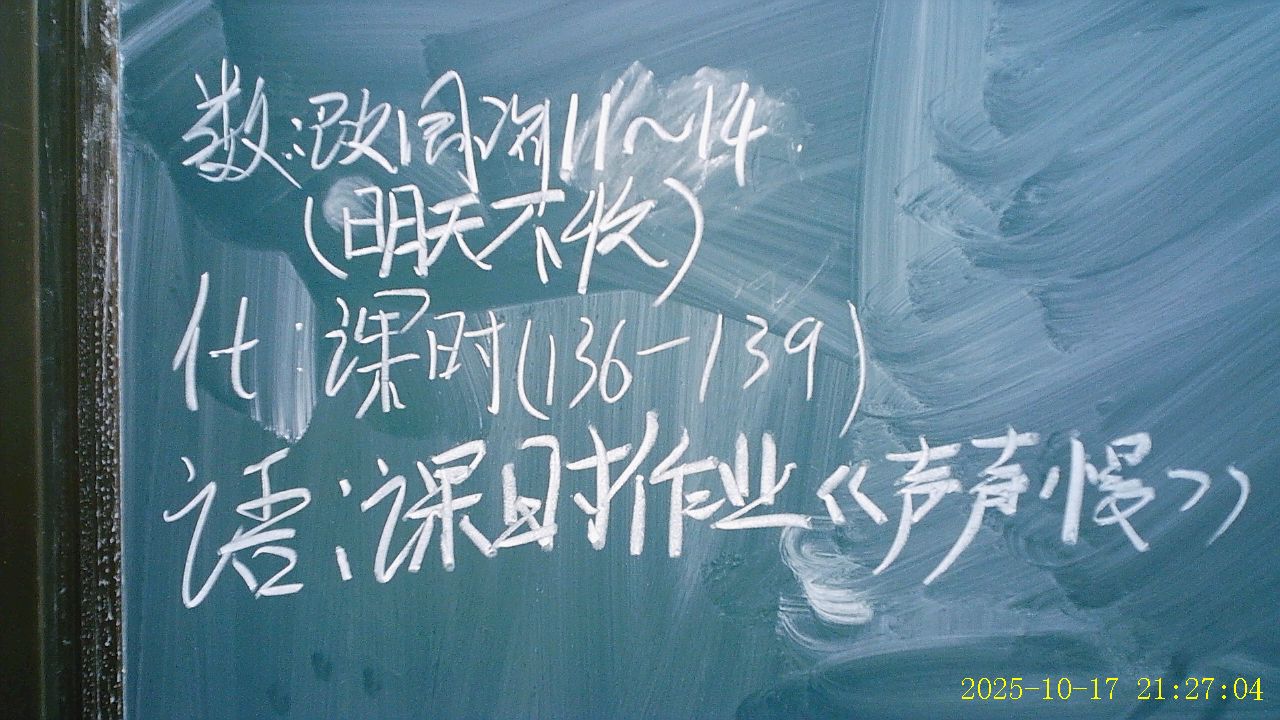 数:改周测11~14.
(明天不收)
化:课时(136-139)
语:课时作业《声声慢》
2025-10-17 21:27:04